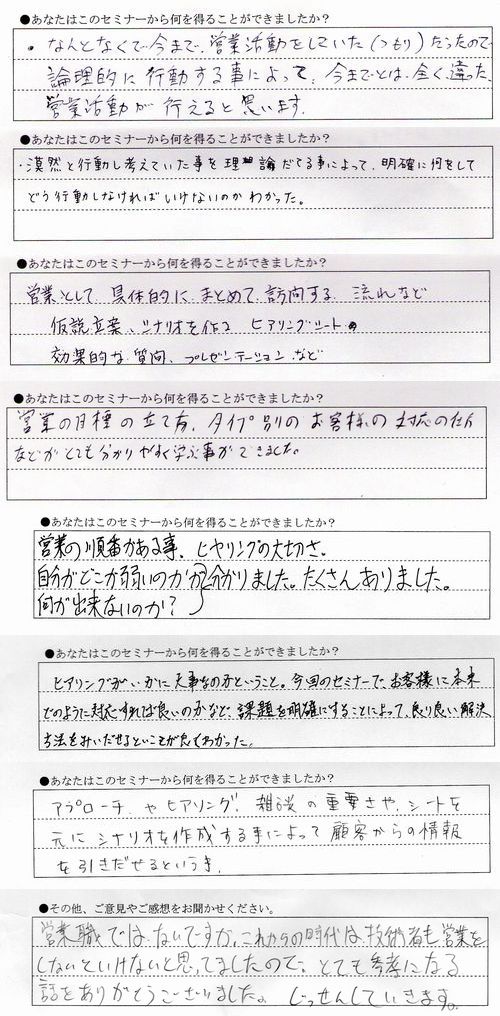 ●あなたはこのセミナーから何を得ることができましたか？
・なんとなくで今まで、営業活動をしていた(つもり)だったので
論理的に行動する事によって、今までとは、全く違った
営業活動が行えると思います。
●あなたはこのセミナーから何を得ることができましたか？
・漠然と行動し考えていた事を理論だてる事によって、明確に何をして
どう行動しなければいけないのかわかった。
●あなたはこのセミナーから何を得ることができましたか？
営業として具体的にまとめて訪問する流れなど
仮説立案、シナリオを作る ヒアリングシートの
効果的な質問、プレゼンテーションなど
●あなたはこのセミナーから何を得ることができましたか？
営業の目標の立て方、タイプ別のお客様の対応の仕方
などがとても分かりやすく学ぶ事ができました。
●あなたはこのセミナーから何を得ることができましたか？
営業の順番がある事、ヒヤリングの大切さ。
自分がどこが弱いのかが分かりました。たくさんありました。
何が出来ないのか？
●あなたはこのセミナーから何を得ることができましたか？
ヒアリングがいかに大事なのかということ。今回のセミナーで、お客様に本来
どのように対応すれば良いのかなど、課題を明確にすることによって、良り良い解決
方法をみいだせるということが良くわかった。
●あなたはこのセミナーから何を得ることができましたか？
アプローチやヒアリング！雑談の重要さや、シートを
元にシナリオを作成する事によって顧客からの情報
を引きだせるという事。
●その他、ご意見やご感想をお聞かせください。
営業職ではないですが、これからの時代は技術者も営業を
しないといけないと思ってましたので。とても参考になる
話をありがとうございました。じっせんしていきます。